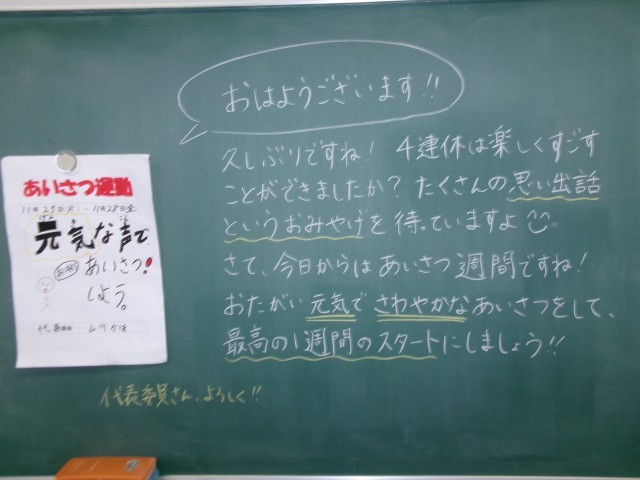 おはようございます!!
久しぶりですね! 4連休は楽しくすごす
ことができましたか? たくさんの思い出話
というおみやげを待っていますよ
さて、今日からはあいさつ週間ですね!
おたがい元気でさわやかなあいさつをして、
最高の1週間のスタートにしましょう!!
代表委員さん、よろしく!!
あいさつ運動
11月25日(火)~11月28日(金)
元気な声で
あいさつ!
しよう。